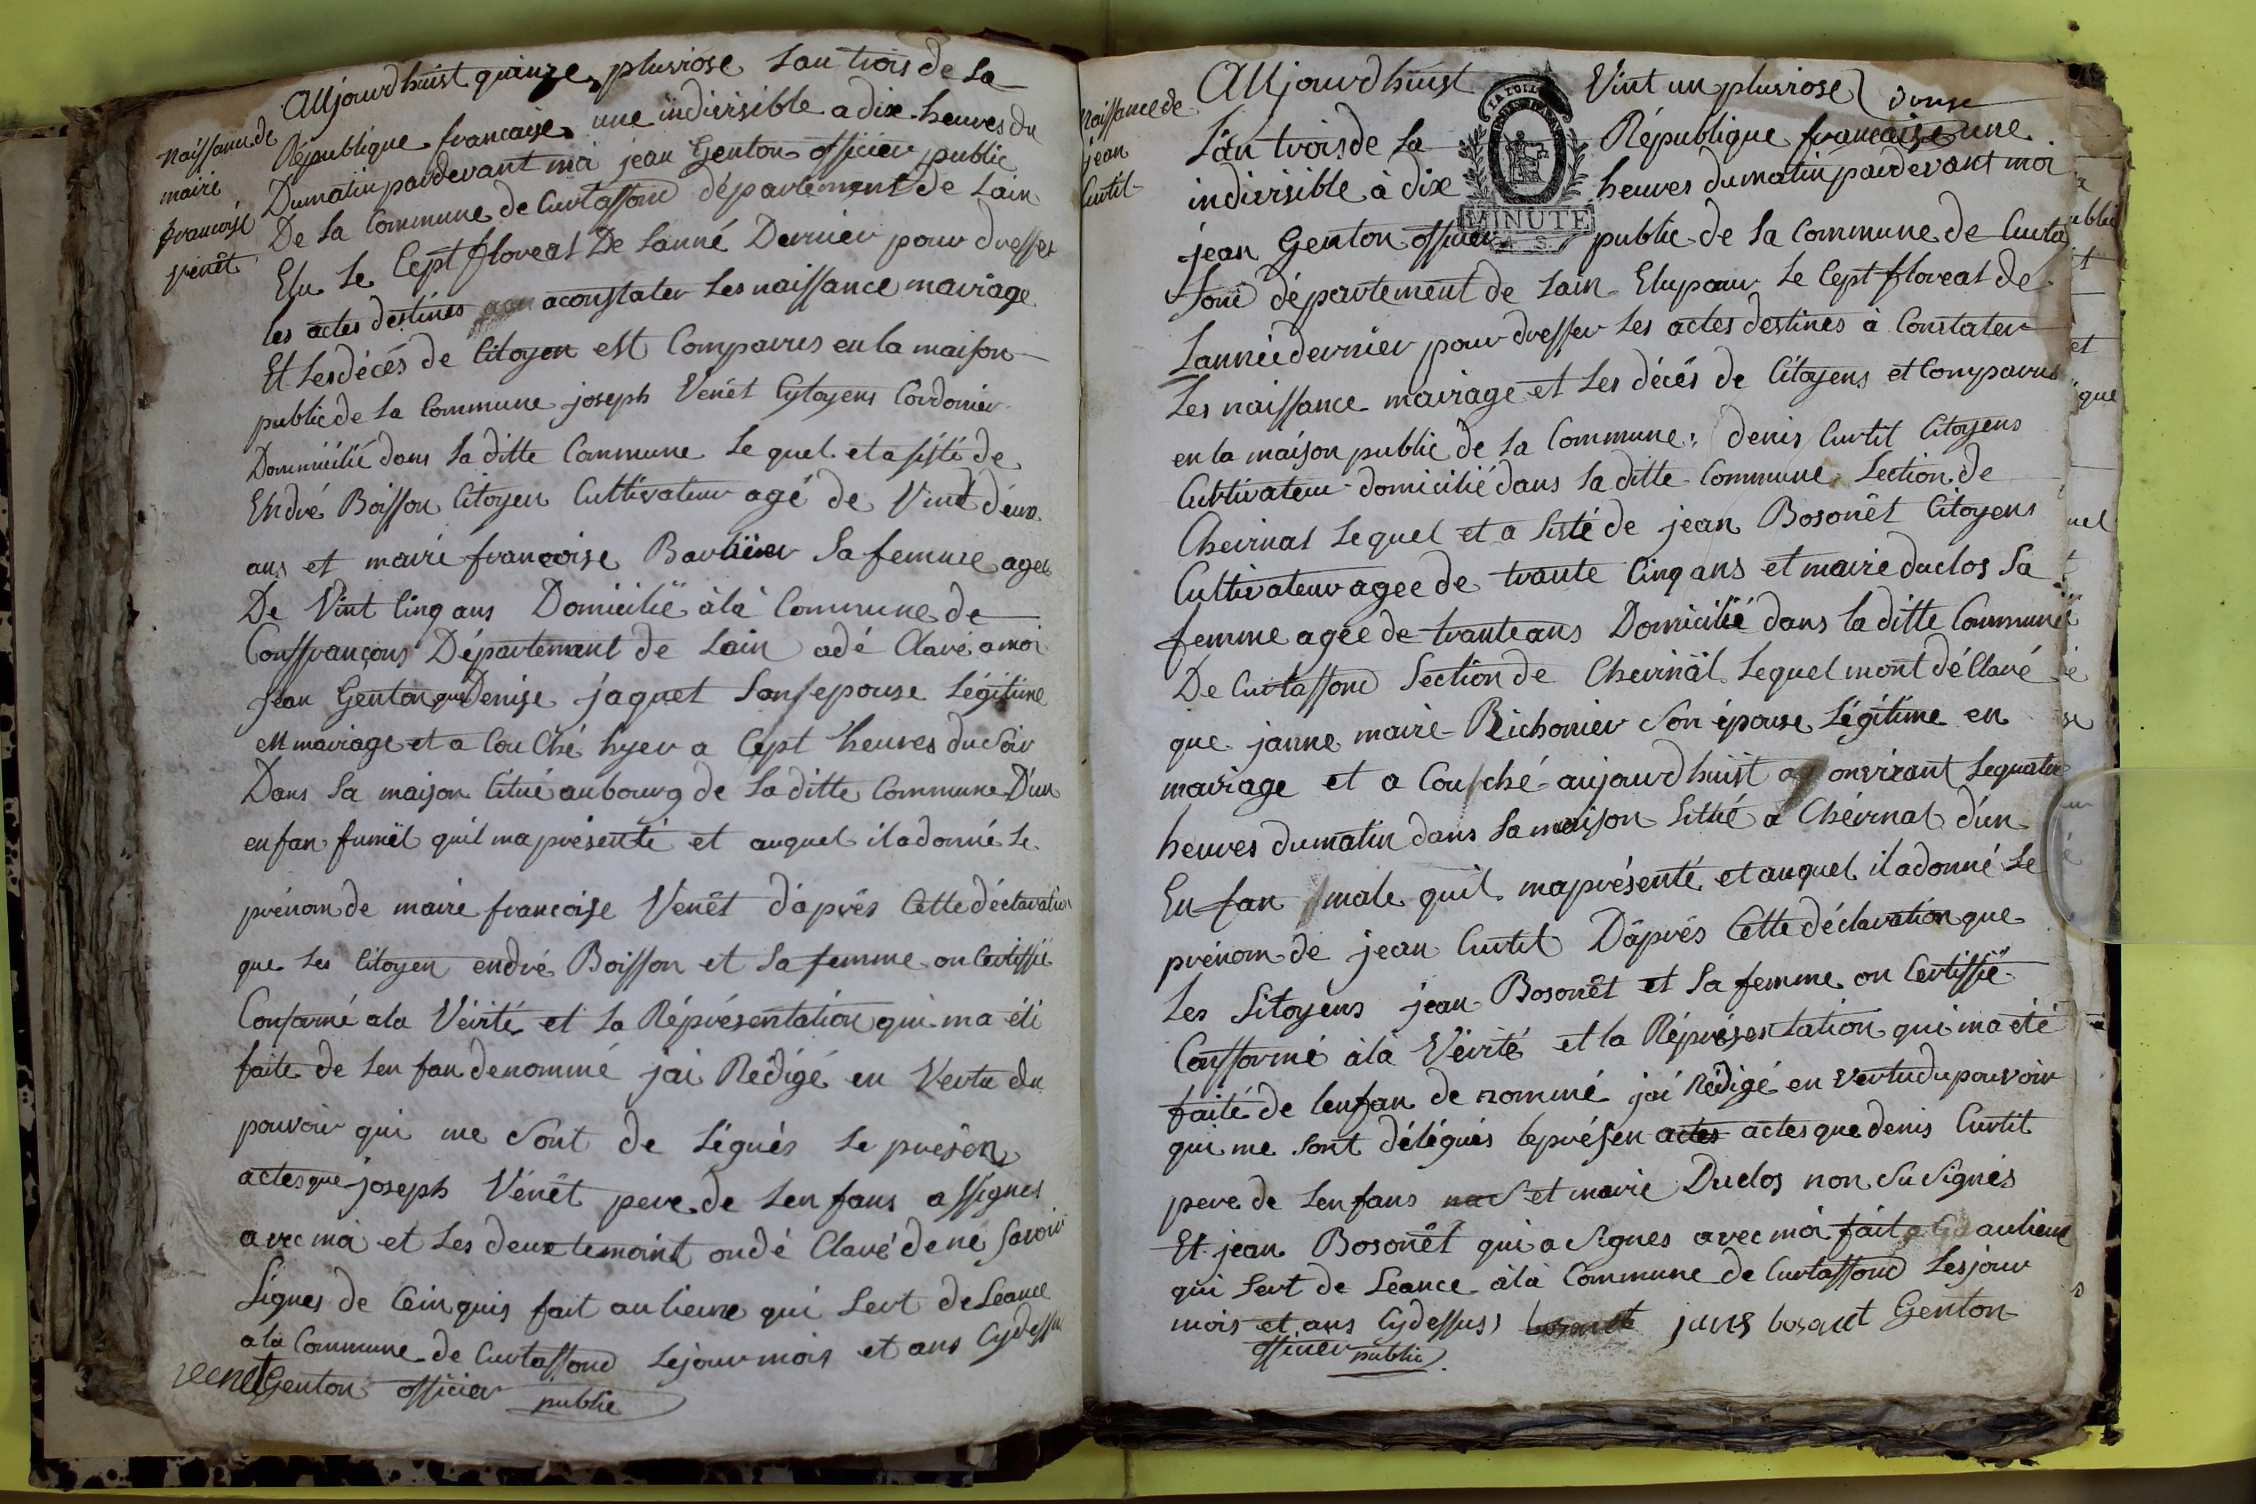 Aujourdhuist quinze pluviose Lan trois de La
naissance de
maire
francoise
venêt
République francaise une indivisible a dix heures du
Dumatin pardevant moi jean Genton officier public
De La Commune de Curtaffond département de Lain
Elu Le Cept floreal De Lanné Dernier pour dresser
les actes destinés aconstater Les naissance mairiage
Et Les décés de Citoyen est Comparus en la maison
public de La Commune joseph Venêt Cytoyens Cordonier
Domiicilié dans La ditte Commune Le quel et a sisté de
Endré Boisson Citoyen Cultivateur agé de Vint deux
ans et mairi francoise Barbier Sa femme agee
De Vint Cinq ans Domicilië àlà Commune de
Conffrançons Département de Lain adé Claré a moi
Jean Genton que Denise jaquet Son epouse Légitime
en mairiage et a Couché hyer a Cept heures du Soir
Dans Sa maison Citué au bourg de La ditte Commune D'un
enfan fumêl quil ma présenté et auquel il a donné Le
prénom de mairi francoise Venêt d'aprés Cette déclaration
que Les Citoyen endré Boisson et Sa femme on Certiffié
Conformé ala Vérité et La Réprésentation qui ma été
faite de Len fan denommé jai Rédigé en Vertu du
pouvoir qui me Sont de Légués Le présen
actes que joseph Vénêt pere de Len fans a ssignes
avec moi et Les deux temoint ondé Claré de né Savoir
Signes de Ceinquis fait au lieux qui Sert de Séance
a la Commune de Curtaffond Le jour mois et ans Cy dessus
venet Genton officier public
naissance de
jean
Curtil
Aujourdhuist Vint un pluviose
Lan trois de La République francaise une
indivisible à dix heures du matin pardevant moi
jean Genton officier public de La Commune de Curta
fond département de Lain Elu pour Le Cept floreal de
Lannée dernier pour dresser Les actes destines à Constater
Les naissance mairiage et Les décés de Citoyens et Comparus
en la maison public de La Commune denis Curtil Citoyens
Cultivateur domicilié dans La ditte Commune Section de
Cheirnal Lequel et a Sisté de jean Bosonêt Citoyens
Cultivateur agee de trante Cinq ans et maire duclos Sa
femme agée de trante ans Domicilié dans la ditte Commune
De Curtaffond Section de Cheirnàl Lequel mont déClaré
que janne maire Bichonier Son épouse Légitime en
mairiage et a Couché aujourdhuist a onvirant Lequatre
heures du matin dans Sa maison Sitüé a Chéirnal d'un
Enfan male quil ma présenté et auquel il a donné Le
prénom de jean Curtil D'aprés Cette déclaration que
Les Sitoyéns jean Bosonêt et Sa femme on Certiffié
Confformé àlà Vérité et la Réprésentation qui ma été
faité de lenfan de nommé jai Rédigé en vertu du pouvoir
qui me Sont délégués le présen actes actes que denis Curtil
pere de Len fans et marie Duclos non Su Signés
Et jean Bosonêt qui a Signes avec moi fait au lieux
qui Sert de Séance àlà Commune de Curtaffond Les jour
mois et ans Cy dessus bosonet Genton
officier public
LA LOI
MINUTE